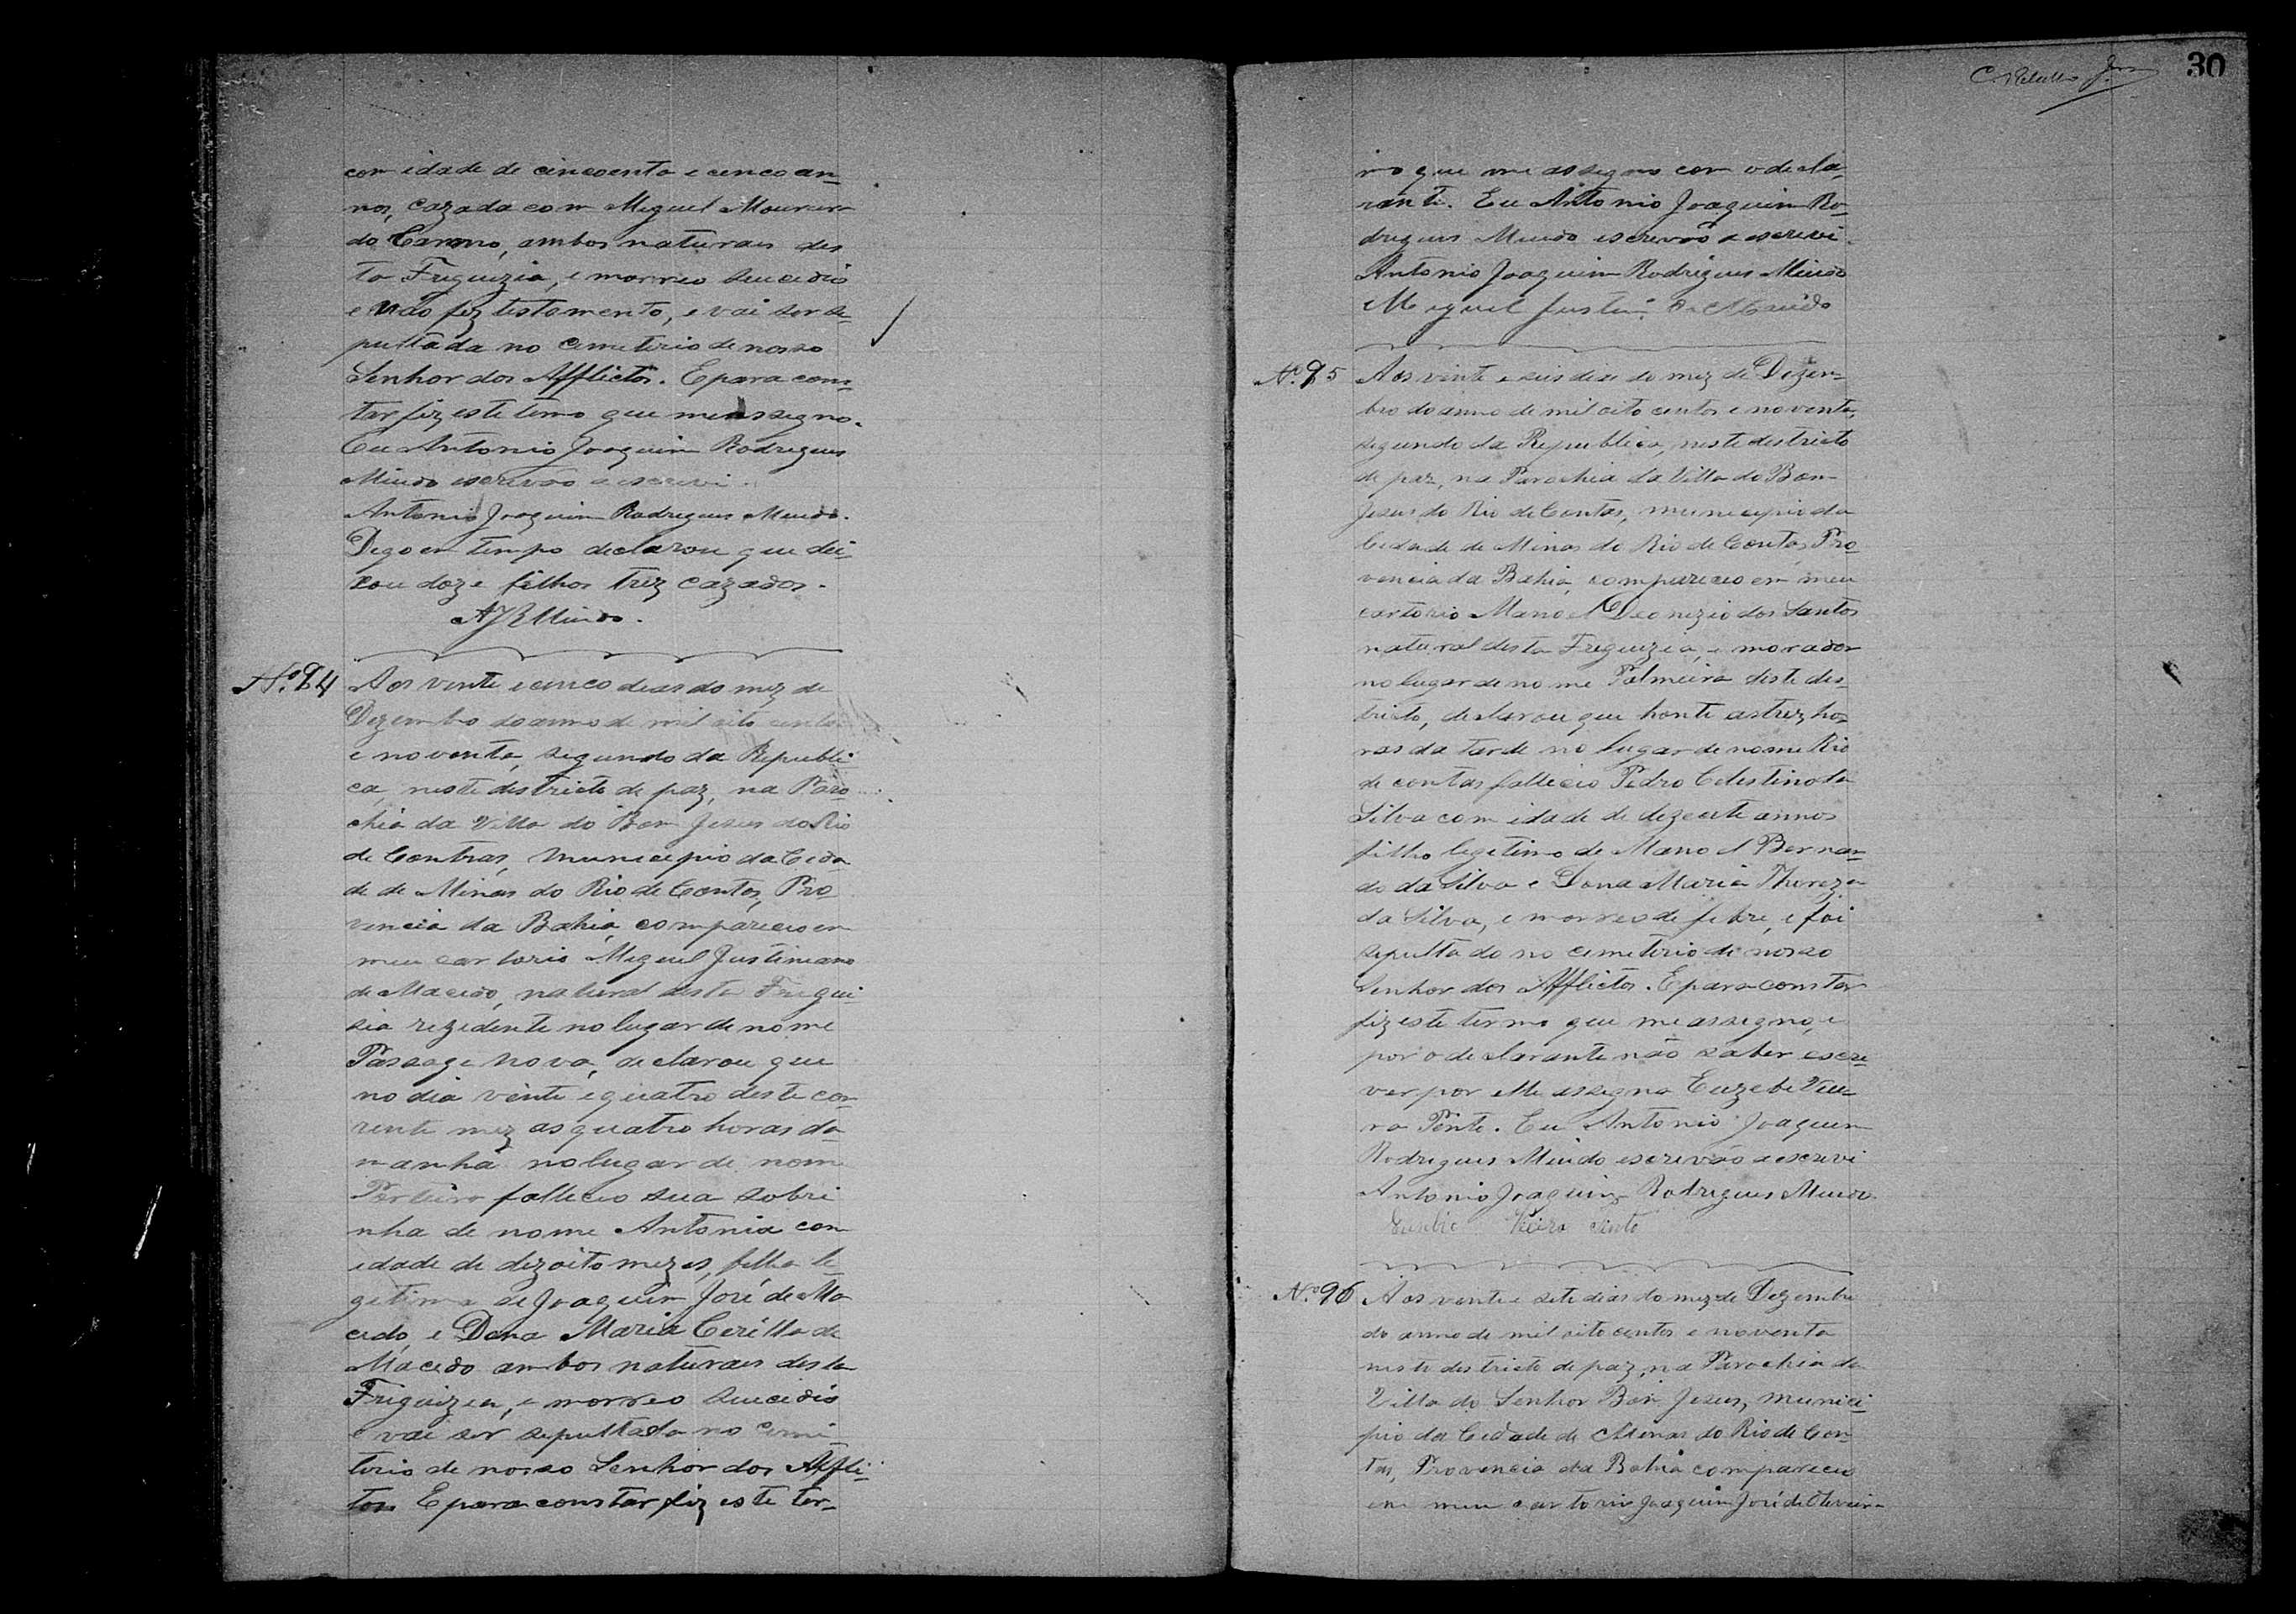 com idade de cincoenta e cenco an-
nos, cazada com Meguel Moureira
do Carmo, ambos naturais des
ta Freguezia, e morreo sucedio
e não fez testamento, e vai ser se-
pultada no cemeterio de nosso
Senhor dos Afflictos. E para cons-
tar fiz este termo que me assegno.
Eu Antonio Joaquim Rodregues
Miudo escrevão a escrevi.
Antonio Joaquim Rodregues Miudo.
Dego em tempo declarou que dei-
xou doze filhos trez cazados.
AJRMiudo.
Nº 94 Aos vente e cenco deas do mez de
Dezembro do anno de mil oito centos
e noventa, segundo da Republi-
ca, neste destricto de paz, na Paro-
chia da Villa do Bom Jesus do Rio
de Contas, Municipio da Cida
de de Minas do Rio de Contas, Pro
vencia da Bahia, compareceo em
meu cartorio Meguel Justiniano
de Macedo, natural desta Fregue-
sia rezedente no lugar de nome
Passage Nova, declarou que
no dia vente e quatro deste cor-
rente mez as quatro horas da
manhã no lugar de nome
falleceo sua sobri
nha de nome Antonia com
idade de dezoito mezes, filha le-
getima de Joaquim José de Ma
cedo, e Dona Maria Cerilla de
Macedo ambos naturaes desta
Freguizea, e morreo sucedio
e vai ser sepultada no ceme-
terio de nosso Senhor dos Affli-
tos E para constar fiz este ter-
30
mo que me assegno com o decla-
rante. Eu Antonio Joaquim Ro-
dregues Miudo escrevão a escrevi.
Antonio Joaquim Rodrigues Miudo
Miguel Justin. de Macêdo
Nº 95 Aos vinte e seis dias do mez de Dezem-
bro do anno de mil oito centos e noventa,
segundo da Republica, neste destricto
de paz, na Parochia da Villa do Bom
Jesus do Rio de Contas, municipio da
Cedade de Minas do Rio de Contas, Pro
vencia da Bahia, compareceo em meu
cartorio Manoel Deonezio dos Santos
natural desta Freguezia, e morador
no lugar de nome Palmeira deste des-
tricto, declarou que honte as trez ho-
ras da tarde no lugar de nome Rio
de contas falleceo Pedro Celestino da
Silva com idade de dezeoite annos
filho legetimo de Manoel Bernar-
do da Silva e Dona Maria Thereza
da Silva, e morreo de febre, e foi
sepultado no cemeterio de nosso
Senhor dos Afflictos. E para constar
fiz este termo que me assegno, e
por o declarante não saber escre
ver por elle assegna Euzebe Viei-
ra Pente. Eu Antonio Joaquim
Rodregues Miudo escrevão a escrevi
Antonio Joaquim Rodregues Miudo.
Eusebio Vieira Pinto
Nº 96 Aos vente e sete dias do mez de Dezembro
do anno de mil oito centos e noventa
neste destricto de paz, na Parochia da
Villa do Senhor Bom Jesus, Munici-
pio da Cedade de Minas do Rio de Con-
tas, Provencia da Bahia compareceu
em meu cartorio Joaquim José de Oliveira